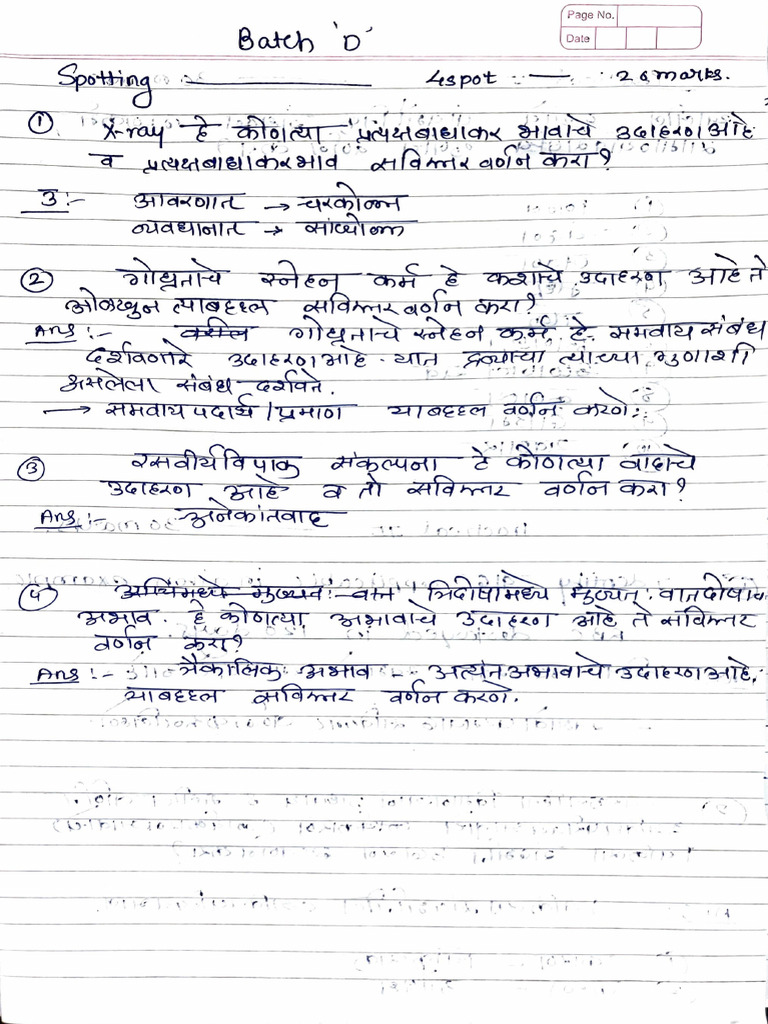 Page No.
Date
Batch 'D'
Spotting 4 spot — 20 marks.
① X-ray हे कोणत्या प्रत्यक्षबाधाकर भावाचे उदाहरण आहे
व प्रत्यक्षबाधाकरभाव सविस्तर वर्णन करा?
उ:- आवरणात → चरकोक्त
व्यवधानात → सांख्योक्त
② गोघृताचे स्नेहन कर्म हे कशाचे उदाहरण आहे ते
ओळखुन त्याबद्दल सविस्तर वर्णन करा?
Ans:- गोघृताचे स्नेहन कर्म हे समवाय संबंध
दर्शवणारे उदाहरण आहे. यात द्रव्याचा त्याच्या गुणाशी
असलेला संबंध दर्शवते.
→ समवाय पदार्थ / प्रमाण याबद्दल वर्णन करणे.
③ रसवीर्यविपाक संकल्पना हे कोणत्या वादाचे
उदाहरण आहे व तो सविस्तर वर्णन करा?
Ans:- अनेकांतवाद
④ त्रिदोषामध्ये मुख्यत: वातदोषाचा
अभाव. हे कोणत्या अभावाचे उदाहरण आहे ते सविस्तर
वर्णन करा?
Ans:- त्रैकालिक अभाव - अत्यंत अभावाचे उदाहरण आहे.
याबद्दल सविस्तर वर्णन करणे.